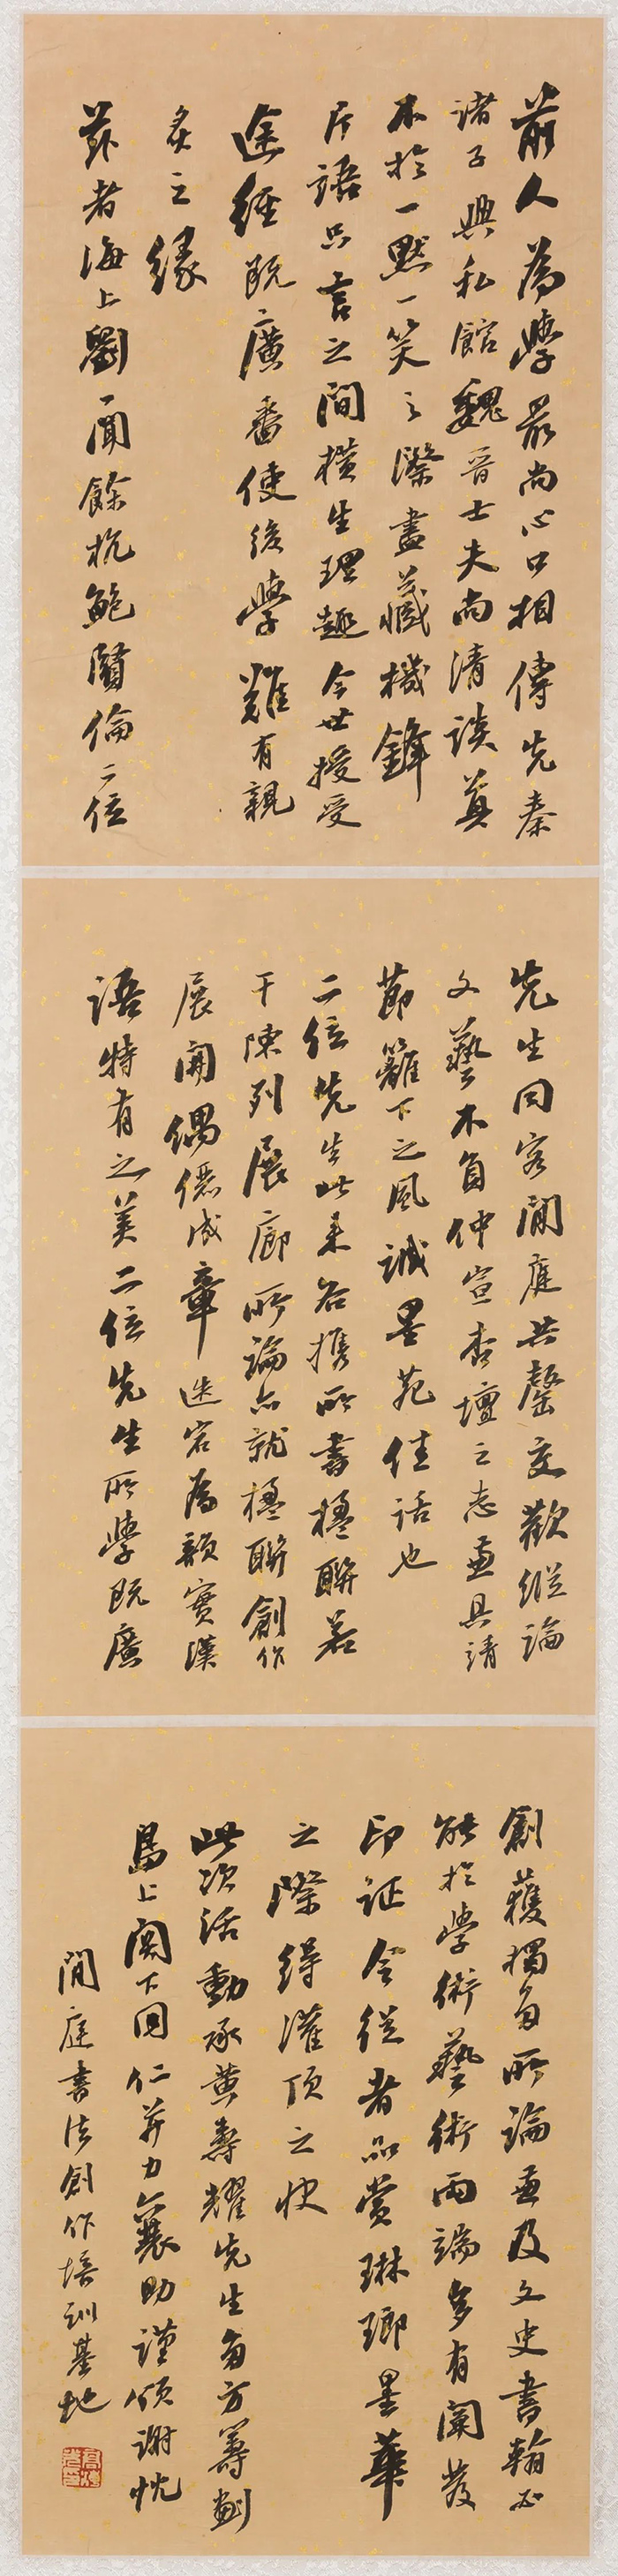 前人為學最尚心口相傳先秦
諸子興私館魏晉士夫尚清談莫
不於一默一笑之際盡藏機鋒
片語只言之間橫生理趣今世授受
途經既廣番使後學難有親
炙之緣
茲者海上劉一聞餘杭鮑賢倫二位
先生同客閒庭共罄交歡縱論
文藝不負仲宣杏壇之志兼具靖
節籬下之風誠墨苑佳話也
二位先生此來各携所書楹聯若
干陳列展廊所論亦就楹聯創作
展開偶儷成章迭宕為韻實漢
語特有之美二位先生所學既廣
創獲獨多所論兼及文史書翰必
能於學術藝術兩端多有闡發
印证令從者品赏琳瑯墨華
之際得灌頂之快
此次活動承黄壽耀先生多方筹劃
島上闕下同仁并力襄助謹頌謝忱
閒庭書法創作培训基地